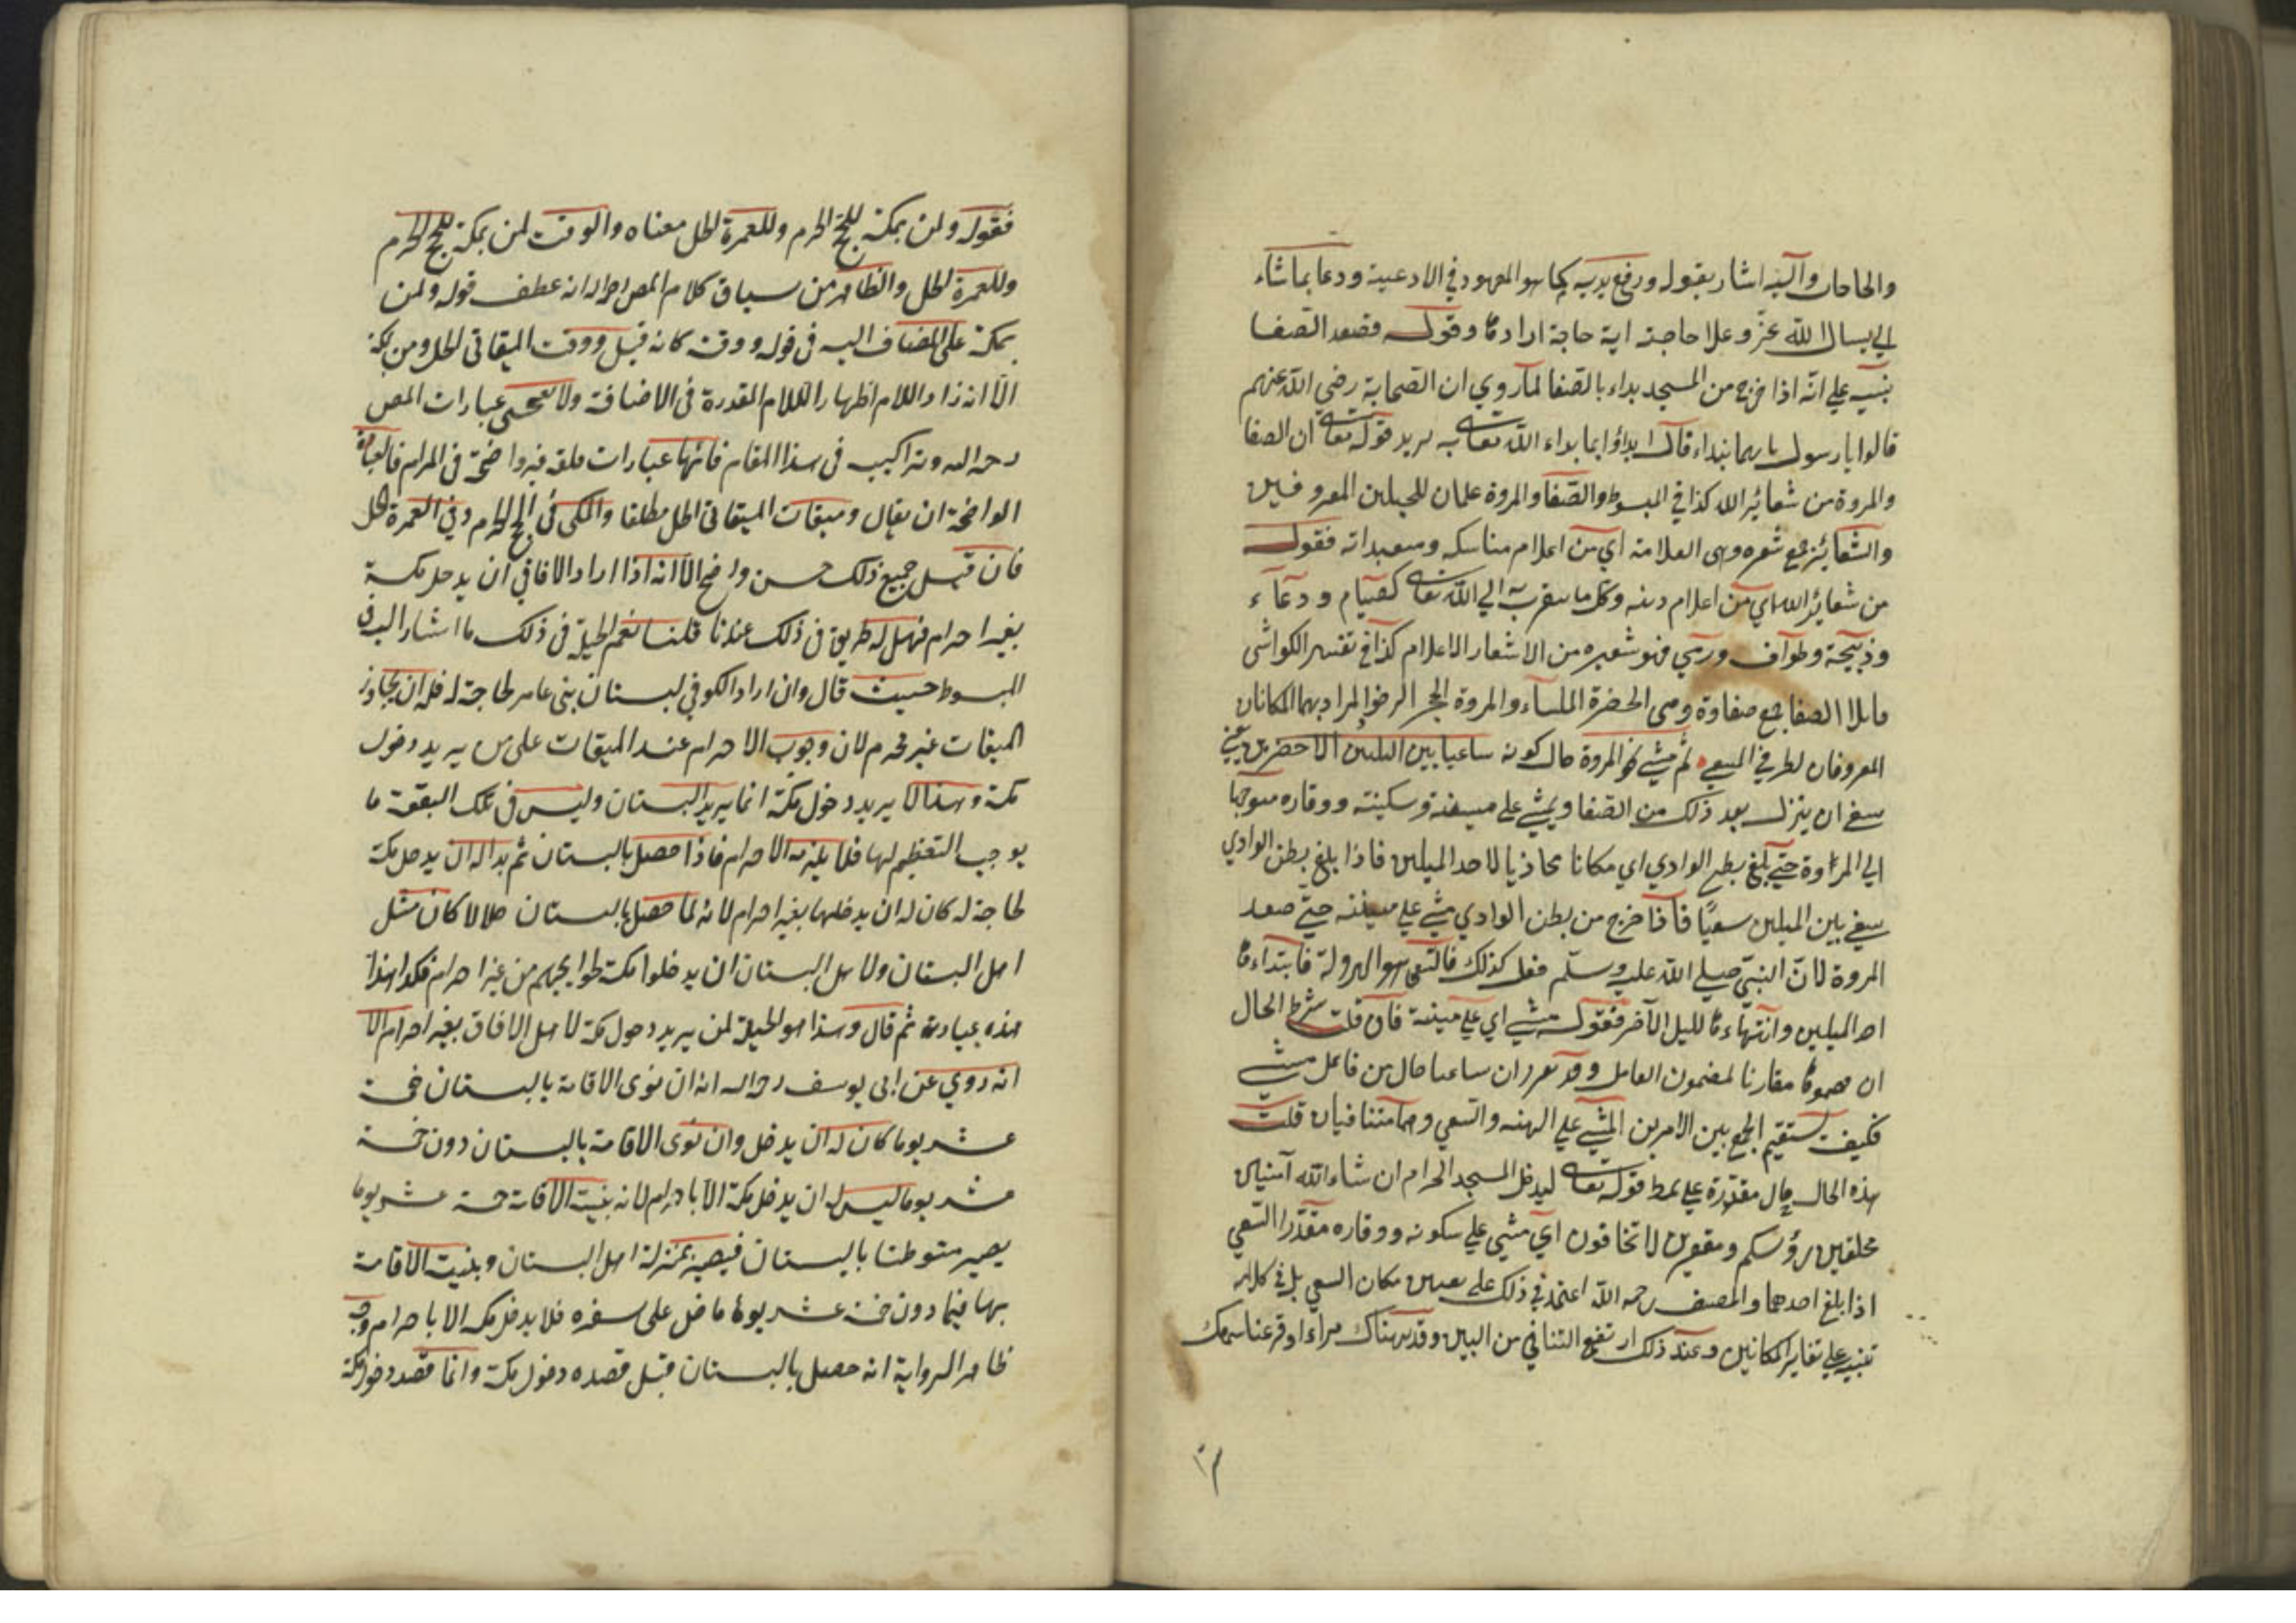 والحاجات واليه اشار بقوله ورفع يديه كما هو المعهود في الادعية ودعا بما شاء
اي يسال الله عز وعلا حاجته اية حاجة ارادها وقوله فصعد الصفا
ينبيه علي انه اذا خرج من المسجد بداء بالصفا لما روي ان الصحابة رضي الله عنهم
قالوا يا رسول بايهما نبداء قال ابداؤا بما بداء الله تعالى به يريد قوله تعالى ان الصفا
والمروة من شعائر الله كذا في المبسوط والصفا والمروة علمان للجبلين المعروفين
والشعائر جمع شعيره وهى العلامة اي من اعلام مناسكه ومتعبداته فقوله
من شعائر الله اي من اعلام دينه وكل ما يتقرب به الي الله تعالى كصيام ودعاء
وذبيحة وطواف ورمي فهو شعيره من الاشعار الاعلام كذا في تفسير الكواشى
الصفا جمع صفاوة وهى الملساء والمروة الحجر الرخو المراد بهما المكانان
المعروفان لطرفي المسعي ثم مشي نحو المروة حال كونه ساعيا بين الميلين الاخضرين يعني
ينبغي ان ينزل بعد ذلك من الصفا ويمشي علي هينته وسكينته ووقاره متوجها
الي المروة حتي بلغ بطن الوادي اي مكانا محاذيا لاحد الميلين فاذا بلغ بطن الوادي
سعي بين الميلين سعيا فاذا خرج من بطن الوادي مشي علي هينته حتي صعد
المروة لان النبي صلي الله عليه وسلم فعل كذلك فالسعي هو الهرولة فابتداءها
احد الميلين وانتهاءها للميل الآخر فقوله مشي اي علي هينته فان قلت شرط الحال
ان مقارنا لمضمون العامل وقد تقرر ان ساعيا حال من فاعل مشي
فكيف يستقيم الجمع بين الامرين المشي علي الهينة والسعي وهما متنافيان قلت
هذه الحال حال مقدرة علي نمط قوله تعالى ليدخل المسجد الحرام ان شاء الله آمنين
محلقين رؤسكم ومقصرين لا تخافون اي مشي علي سكونه ووقاره مقدرا السعي
اذا بلغ احدهما والمصنف رحمه الله اعتمد في ذلك علي تعيين مكان السعي بل في كلامه
تنبيه علي تغاير المكانين وعند ذلك ارتفع التنافي من البين وقد هناك مرارا وقرعنا سمعك
فقوله ولمن بمكة للحج الحرم وللعمرة الحل معناه والوقت لمن بمكة للحج الحرم
وللعمرة الحل والظاهر من سياق كلام المص رحمه الله انه عطف قوله ولمن
بمكة على المضاف اليه فى قوله ووقته كانه قيل ووقت الميقاتى الحل ومن بمكة
الا انه زاد اللام اظهارا للام المقدرة فى الاضافة ولا يعجبنى عبارات المص
رحمه الله وتراكيبه فى هذا المقام فانها عبارات قلقه غير واضحة فى المرام فالعبارة
الواضحة ان يقال وميقات الميقاتى الحل مطلقا والمكى فى الحج الحرم وفى العمرة الحل
فان قيل جميع ذلك حسن واضح الا انه اذا اراد الافاقي ان يدخل مكة
بغير احرام فهل له طريق فى ذلك عندنا قلنا نعم الحيلة فى ذلك ما اشار اليه فى
المبسوط حيث قال وان اراد الكوفي بستان بنى عامر لحاجة له فله ان يجاوز
الميقات غير محرم لان وجوب الاحرام عند الميقات على من يريد دخول
مكة وهذا لا يريد دخول مكة انما يريد البستان وليس فى تلك البقعة ما
يوجب التعظيم لها فلا يلزمه الاحرام فاذا حصل بالبستان ثم بدا له ان يدخل مكة
لحاجة له كان له ان يدخلها بغير احرام لانه لما حصل بالبستان حلالا كان مثل
اهل البستان ولاهل البستان ان يدخلوا مكة لحوايجهم من غير احرام فكذا هذا
هذه عبارته ثم قال وهذا هو الحيلة لمن يريد دخول مكة لاهل الافاق بغير احرام الا
انه روي عن ابى يوسف رحمه الله انه ان نوى الاقامة بالبستان خمسة
عشر يوما كان له ان يدخل وان نوى الاقامة بالبستان دون خمسة
عشر يوما ليس له ان يدخل مكة الا باحرام لانه بنيت الاقامة خمسة عشر يوما
يصير متوطنا بالبستان فيصير بمنزلة اهل البستان وبنيت الاقامة
بها فيما دون خمسة عشر يوما ماض على سفره فلا يدخل مكه الا باحرام وجه
ظاهر الرواية انه حصل بالبستان قبل قصده دخول مكة وانما قصد دخول مكة